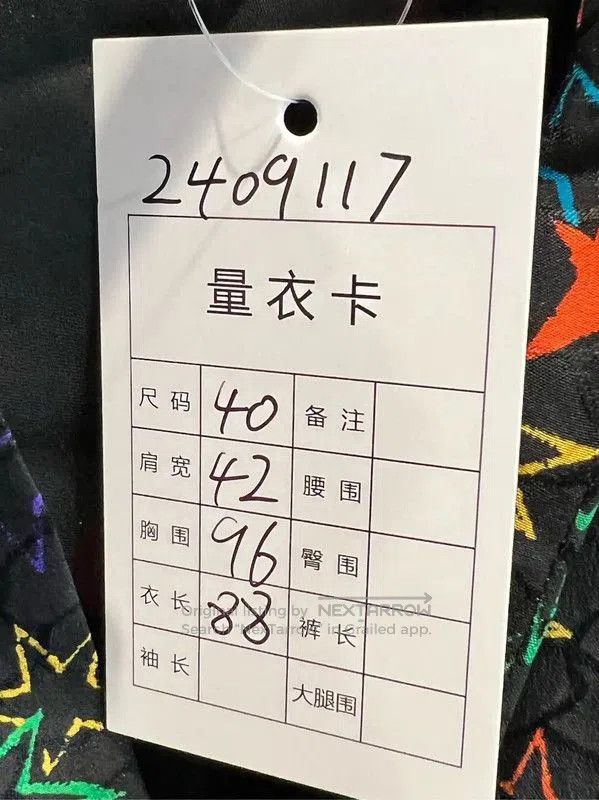 2409117
量衣卡
尺码 40 备注
肩宽 42 腰围
胸围 96 臀围
衣长 88 裤长
Original listing by NEXTARROW
Search "NexTarrow" in Grailed app.
袖长 大腿围